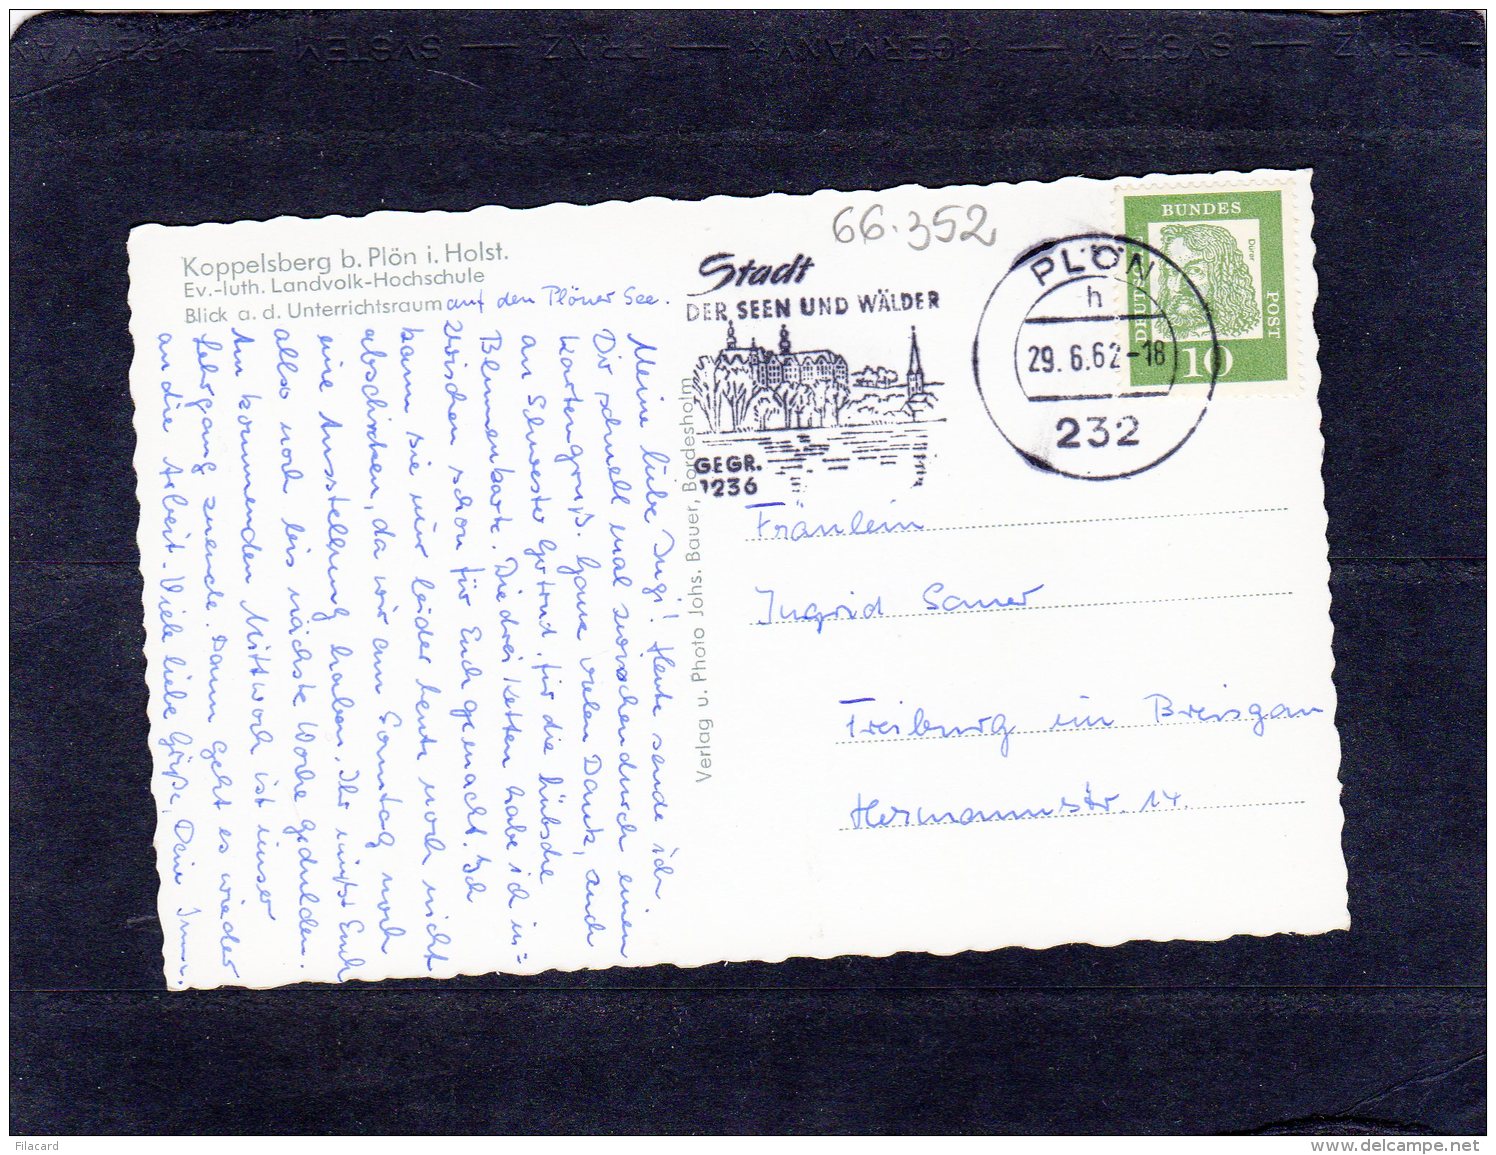 SYSTEM — PRAZ — GERMANY — SYSTEM — PRAZ
66.352
Koppelsberg b. Plön i. Holst.
Ev.-luth. Landvolk-Hochschule
Blick a. d. Unterrichtsraum auf den Plöner See.
Meine liebe Ingi! Heute sende ich
Dir schnell mal zwischendurch einen
Kartengruß. Ganz vielen Dank, auch
an Schwester Gertrud, für die hübsche
Blumenkarte. Die drei Ketten habe ich in-
zwischen schon für Euch gemacht. Ich
kann sie nur leider heute noch nicht
abschicken, da wir am Sonntag noch
eine Ausstellung haben. Ihr müßt Euch
also noch bis nächste Woche gedulden.
Am kommenden Mittwoch ist unser
Lehrgang zuende. Dann geht es wieder
an die Arbeit. Viele liebe Grüße, Dein
Verlag u. Photo Johs. Bauer, Bordesholm
Stadt
DER SEEN UND WÄLDER
GEGR.
1236
PLÖN
h
29.6.62-18
232
BUNDES
POST
DEUT
Dürer
10
Fräulein
Ingrid Sauer
Freiburg im Breisgau
Hermannstr. 14
Filacard
www.delcampe.net